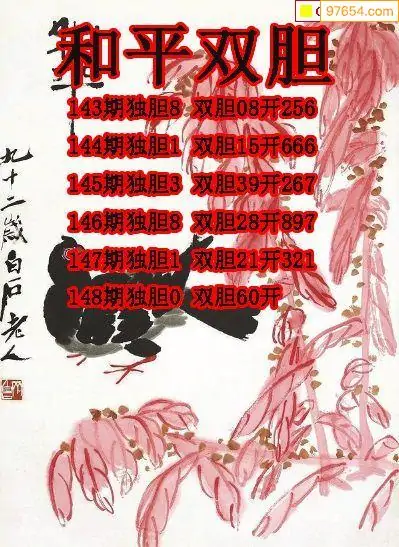 97654.com
和平双胆
143期独胆8 双胆08开256
144期独胆1 双胆15开666
145期独胆3 双胆39开267
146期独胆8 双胆28开897
147期独胆1 双胆21开321
148期独胆0 双胆60开
九十二岁白石老人